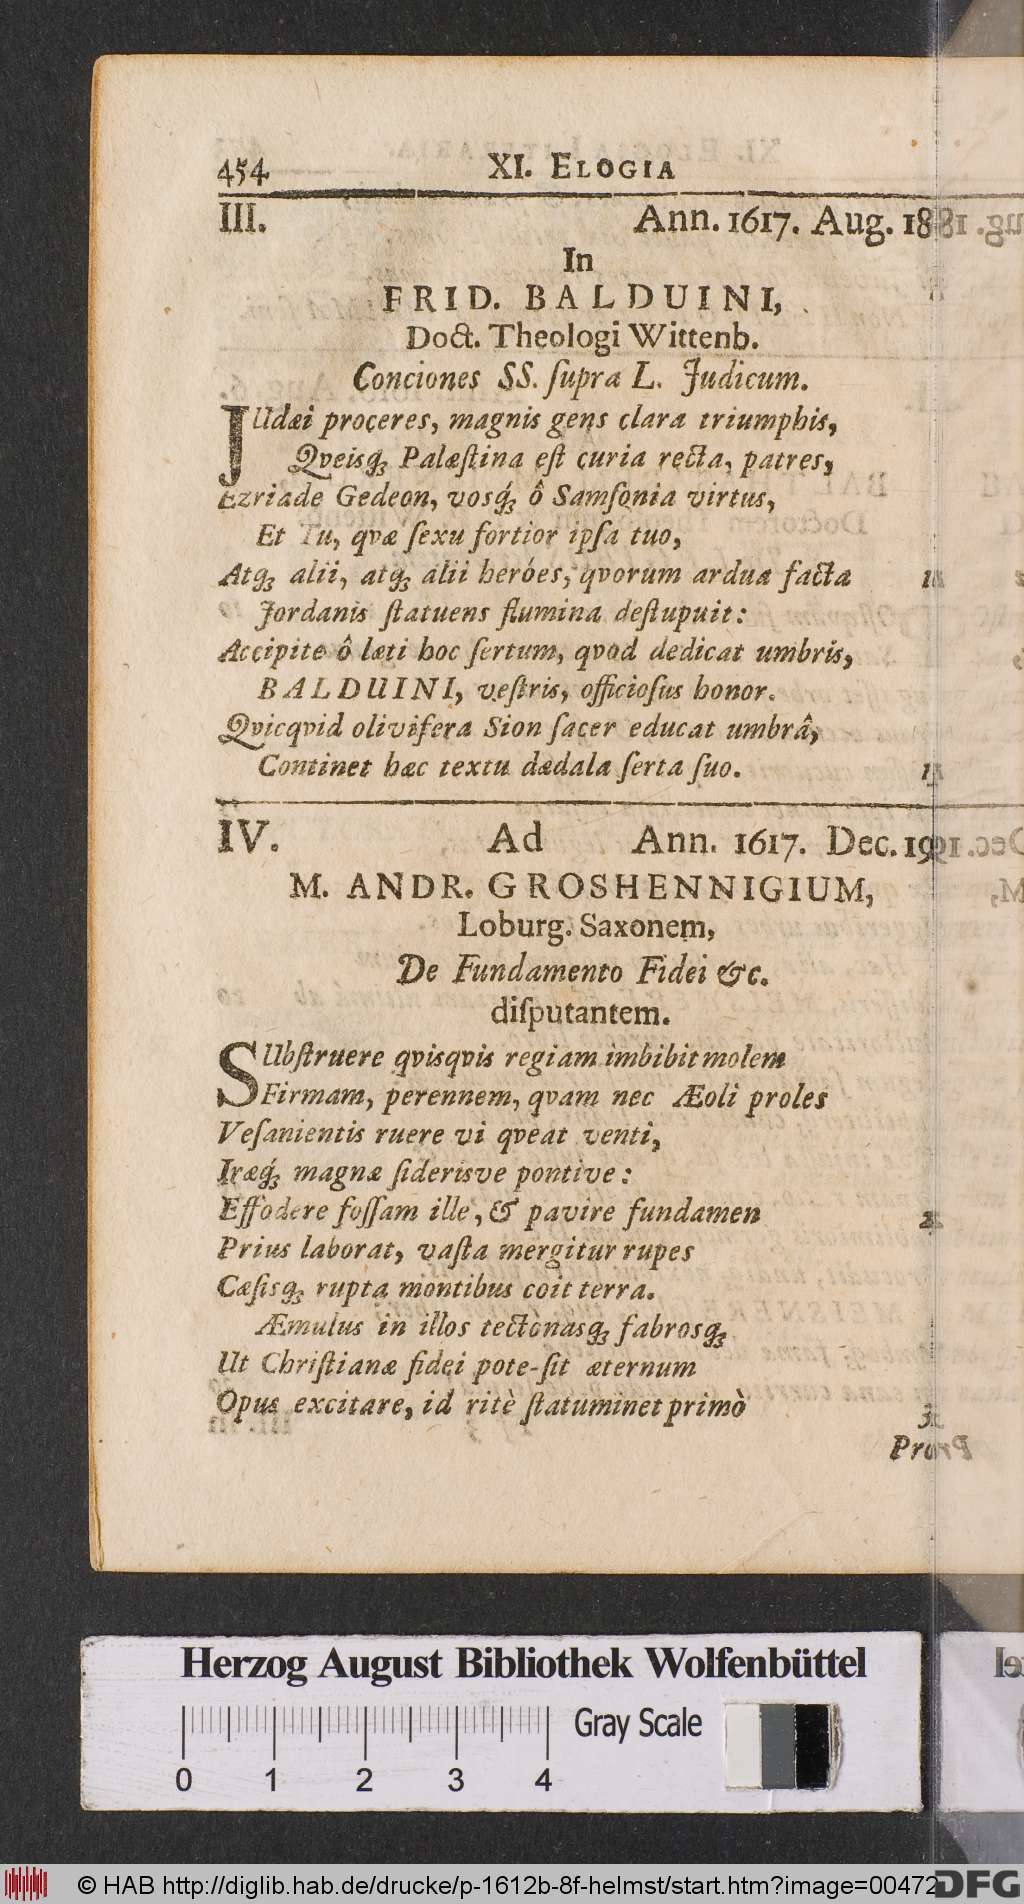 454 XI. ELOGIA
III. Ann. 1617. Aug. 18
In
FRID. BALDUINI,
Doct. Theologi Wittenb.
Conciones SS. ſupra L. Judicum.
JUdæi proceres, magnis gens clara triumphis,
Qveisq́; Palæſtina eſt curia recta, patres,
Ezriade Gedeon, vosq́; ô Samſonia virtus,
Et Tu, qvæ ſexu fortior ipſa tuo,
Atq; alii, atq; alii heróes, qvorum ardua facta
Jordanis ſtatuens flumina deſtupuit:
Accipite ô læti hoc ſertum, qvod dedicat umbris,
BALDUINI, veſtris, officioſus honor.
Qvicqvid olivifera Sion ſacer educat umbrâ,
Continet hæc textu dædala ſerta ſuo.
IV. Ad Ann. 1617. Dec. 19
M. ANDR. GROSHENNIGIUM,
Loburg. Saxonem,
De Fundamento Fidei &c.
diſputantem.
SUbſtruere qvisqvis regiam imbibit molem
Firmam, perennem, qvam nec Æoli proles
Veſanientis ruere vi qveat venti,
Iræq́; magnæ ſiderisve pontive:
Effodere foſſam ille, & pavire fundamen
Prius laborat, vaſta mergitur rupes
Cæſisq; rupta montibus coit terra.
Æmulus in illos tectonasq; fabrosq;
Ut Chriſtianæ fidei pote-ſit æternum
Opus excitare, id ritè ſtatuminet primò
Herzog August Bibliothek Wolfenbüttel
Gray Scale
0 1 2 3 4
© HAB http://diglib.hab.de/drucke/p-1612b-8f-helmst/start.htm?image=00472
DFG